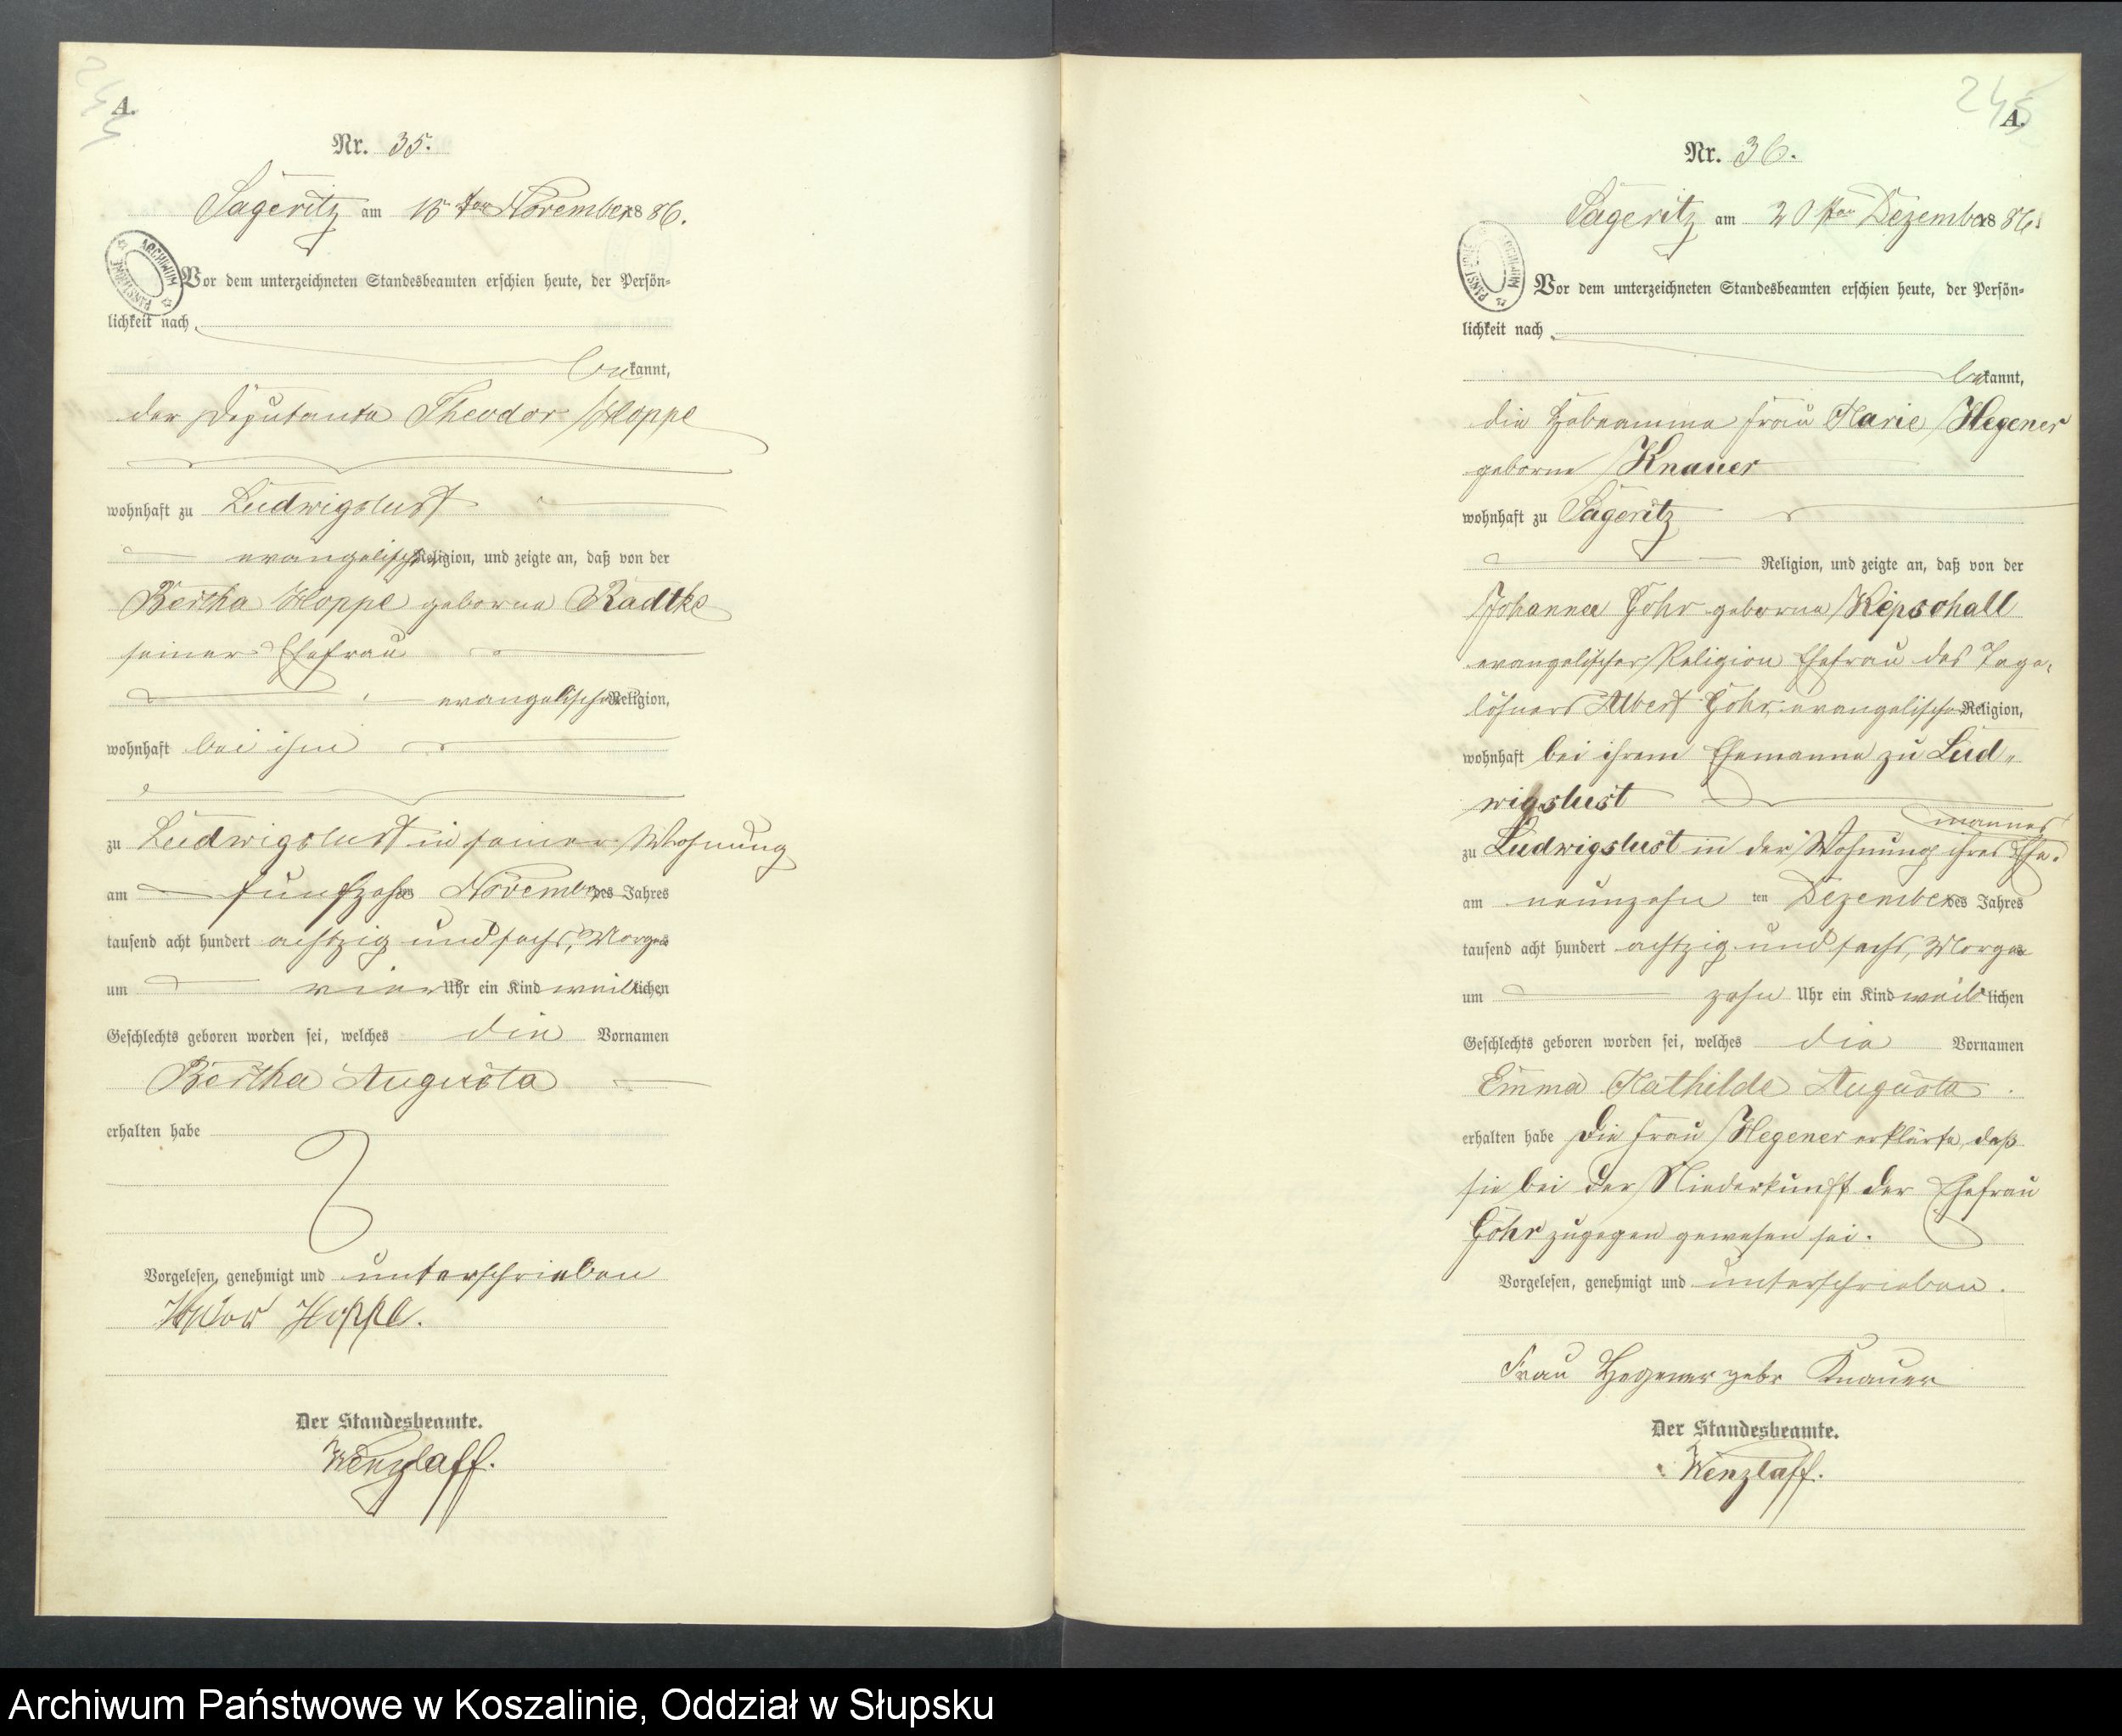 244
A.
Nr. 35.
Sageritz am 15ten November 1886.
Vor dem unterzeichneten Standesbeamten erschien heute, der Persön-
lichkeit nach
bekannt,
der Deputante Theodor Hoppe
wohnhaft zu Ludwigslust
evangelischer Religion, und zeigte an, daß von der
Bertha Hoppe geborne Radtke
seiner Ehefrau
evangelischer Religion,
wohnhaft bei ihm
zu Ludwigslust in seiner Wohnung
am fünfzehnten November des Jahres
tausend acht hundert achtzig und sechs, Morgens
um vier Uhr ein Kind weiblichen
Geschlechts geboren worden sei, welches die Vornamen
Bertha Augusta
erhalten habe
Vorgelesen, genehmigt und unterschrieben
Hoppe.
Der Standesbeamte.
Wenzlaff.
ARCHIWUM PAŃSTWOWE
245
A.
Nr. 36.
Sageritz am 20ten Dezember 1886.
Vor dem unterzeichneten Standesbeamten erschien heute, der Persön-
lichkeit nach
bekannt,
die Hebeamme Frau Marie Hegener
geborne Knauer
wohnhaft zu Sageritz
Religion, und zeigte an, daß von der
Johanna Gohr geborne Kipschall
evangelischer Religion Ehefrau des Tage-
löhners Albert Gohr, evangelischer Religion,
wohnhaft bei ihrem Ehemanne zu Lud-
wigslust
mannes
zu Ludwigslust in der Wohnung ihres Ehe-
am neunzehnten Dezember des Jahres
tausend acht hundert achtzig und sechs, Morgens
um zehn Uhr ein Kind weiblichen
Geschlechts geboren worden sei, welches die Vornamen
Emma Mathilde Augusta
erhalten habe Die Frau Hegener erklärte, daß
sie bei der Niederkunft der Ehefrau
Gohr zugegen gewesen sei.
Vorgelesen, genehmigt und unterschrieben.
Frau Hegener gebr Knauer
Der Standesbeamte.
Wenzlaff.
ARCHIWUM PAŃSTWOWE
Archiwum Państwowe w Koszalinie, Oddział w Słupsku